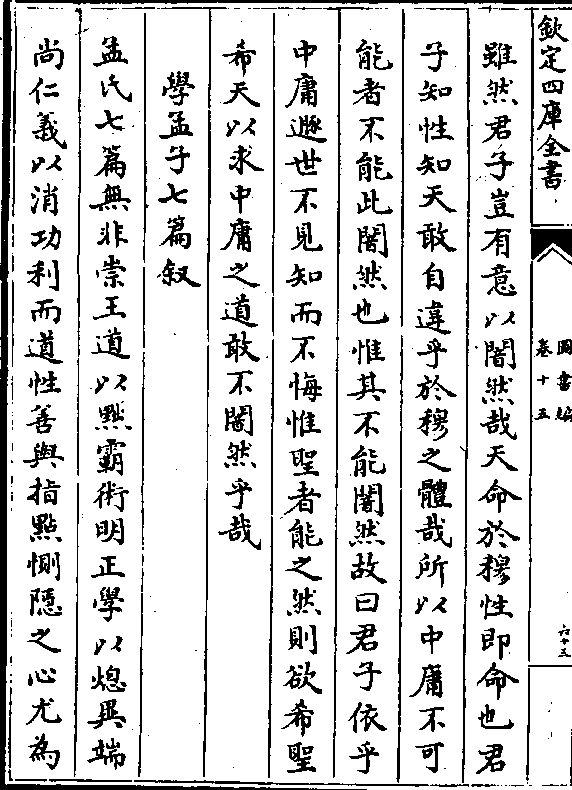 欽定四庫全書
圖書編
卷十五
六十五
雖然君子豈有意以闇然哉天命於穆性即命也君
子知性知天敢自違乎於穆之體哉所以中庸不可
能者不能此闇然也惟其不能闇然故曰君子依乎
中庸遯世不見知而不悔惟聖者能之然則欲希聖
希天以求中庸之道敢不闇然乎哉
學孟子七篇叙
孟氏七篇無非崇王道以黜霸術明正學以熄異端
尚仁義以消功利而道性善與指點惻隱之心尤為